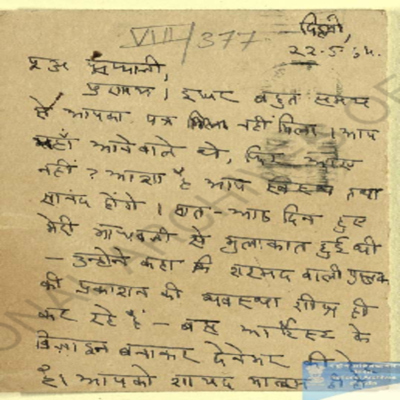 VIII/377
दिल्ली,
22-5-54.
प्रणाम। इधर बहुत समय
से आपका पत्र नहीं मिला। आप
यहाँ आनेवाले थे, फिर आए
नहीं? आशा है आप स्वस्थ तथा
सानंद होंगे। सात-आठ दिन हुए
मेरी से मुलाकात हुई थी
- उन्होंने कहा कि सरमद वाली पुस्तक
की प्रकाशन की व्यवस्था शीघ्र ही
कर रहे हैं - बस आर्टिस्ट के
डिज़ाइन बनाकर देनेभर की
है। आपको शायद मालूम